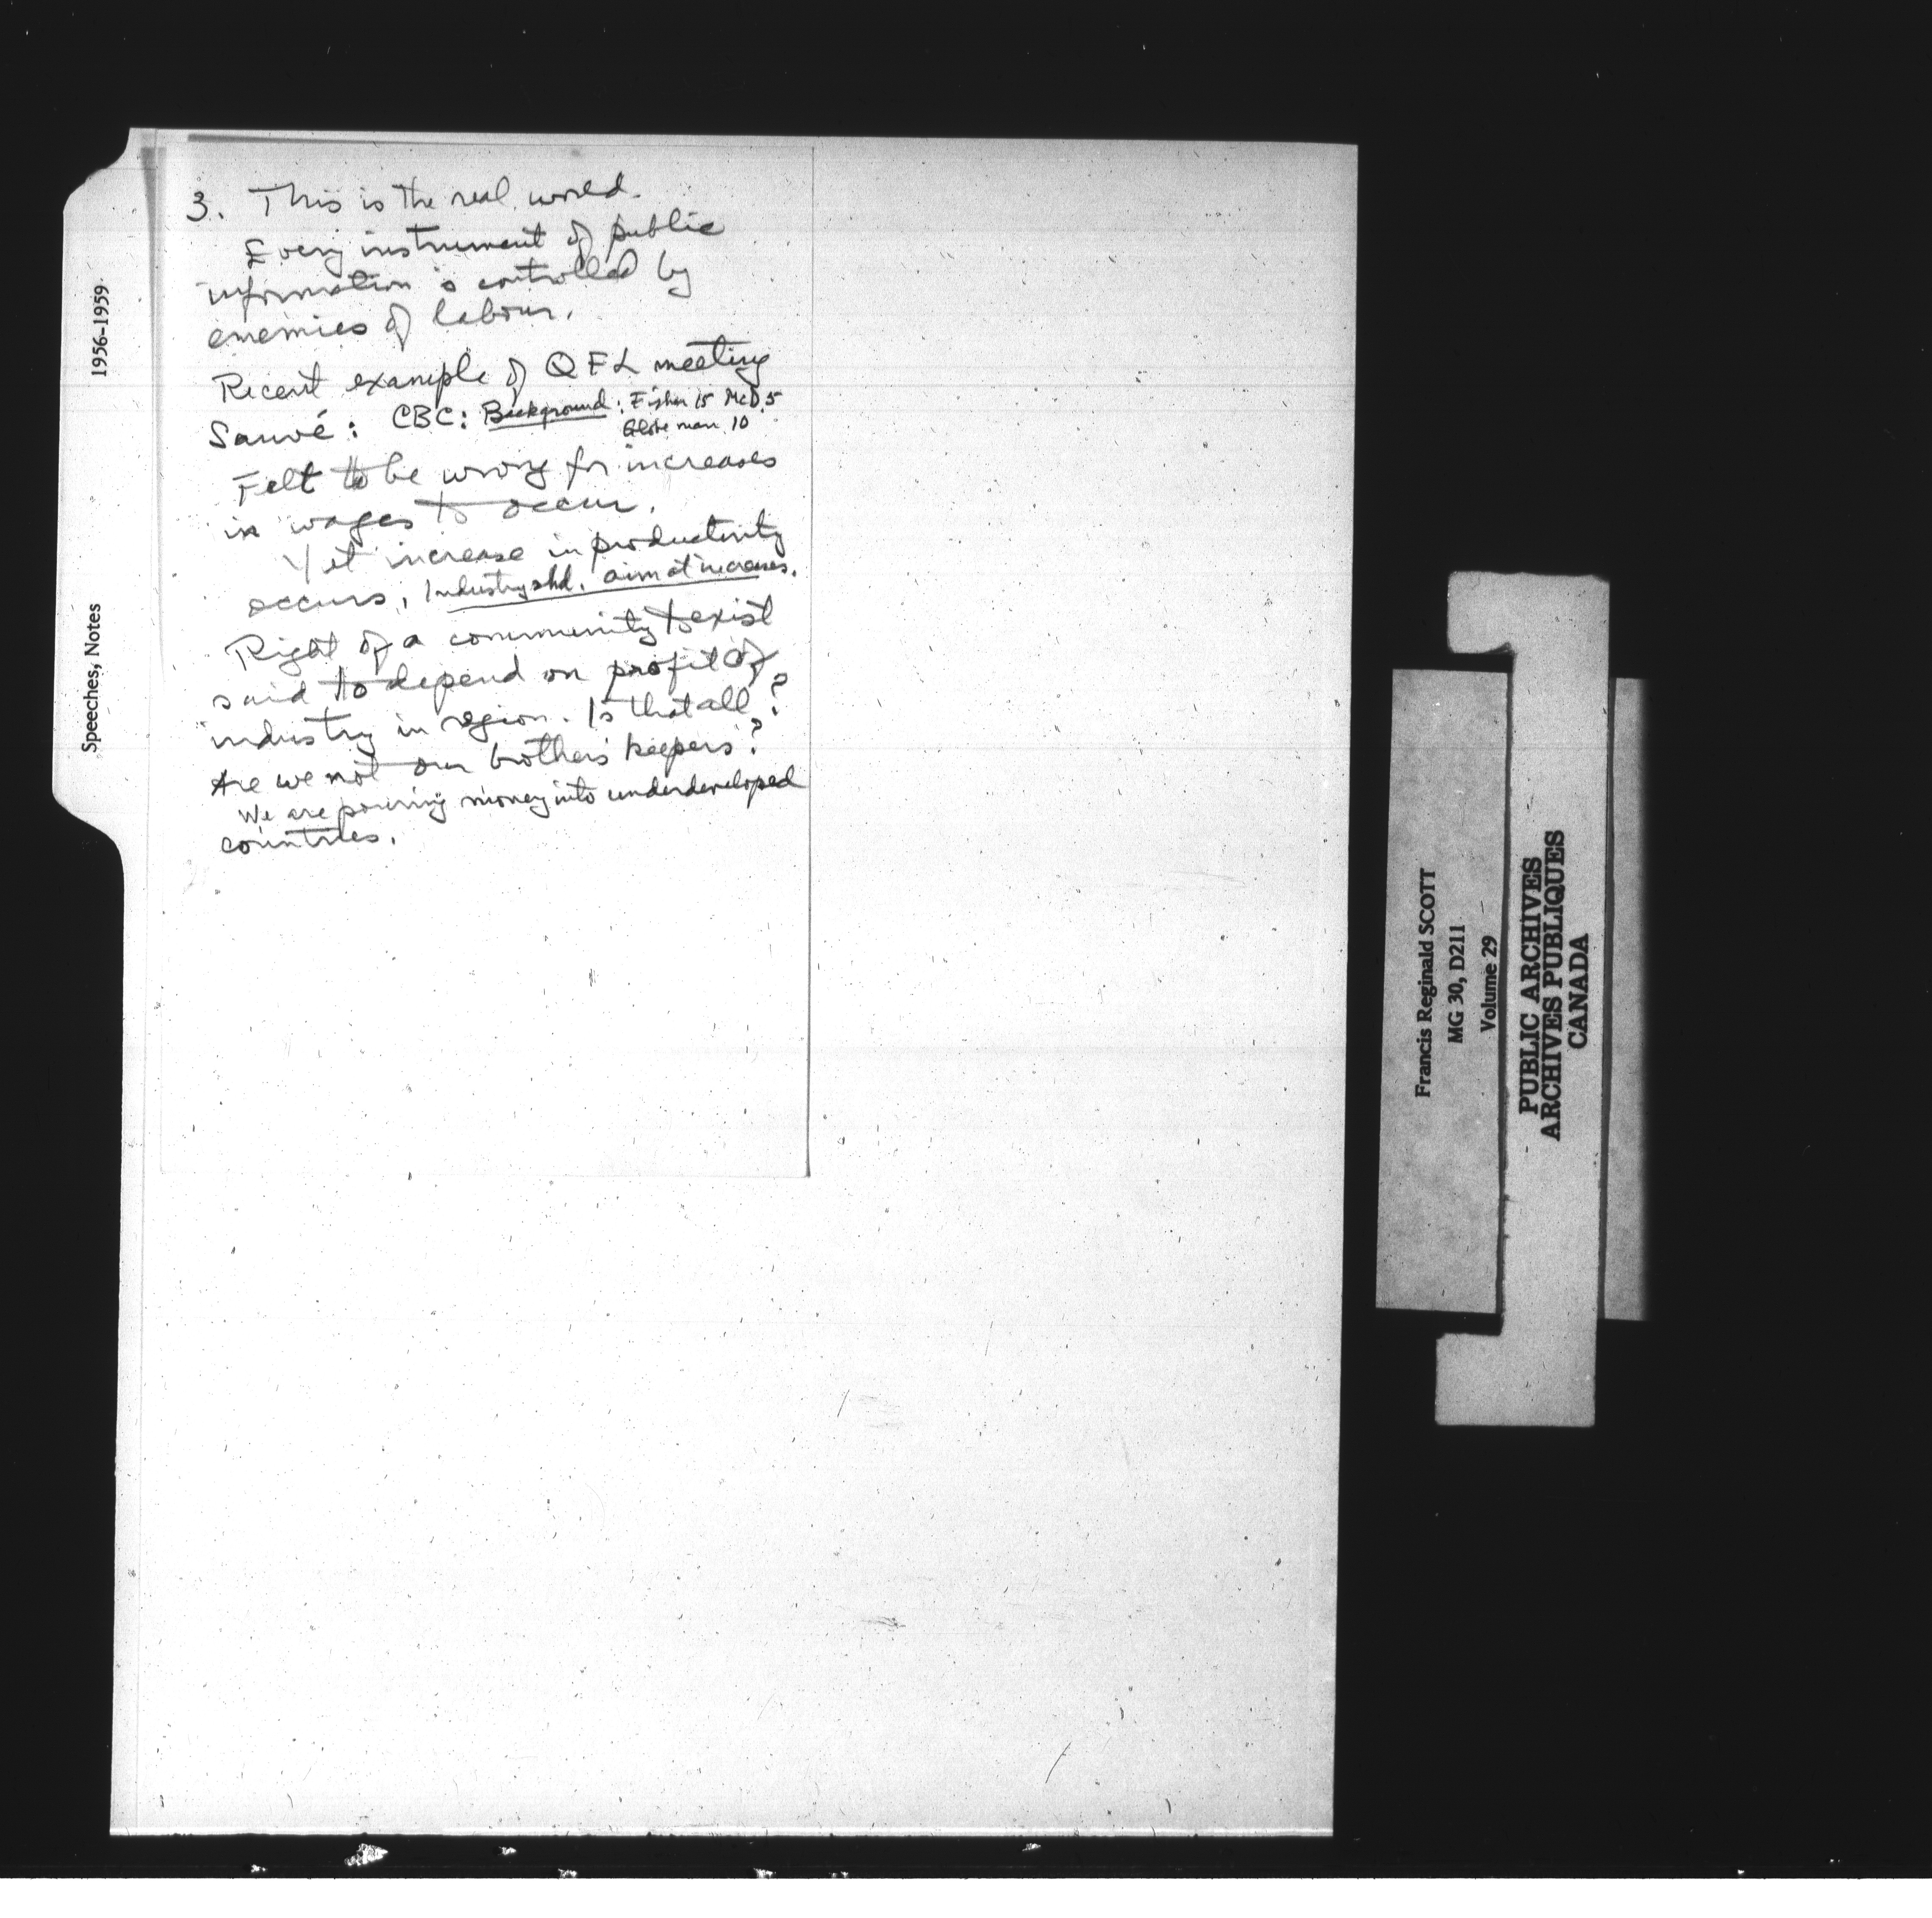 3. This is the real world.
Every instrument of public
information is controlled by
enemies of labour.
Recent example of QFL meeting
Sauvé: CBC: Background: Fisher 15 McD. 5
Globe man 10
Felt to be wrong for increases
in wages to occur.
Yet increase in productivity
occurs, Industry shd. aim at increases.
Right of a community to exist
said to depend on profit of
industry in region. Is that all?
Are we not our brothers' keepers?
We are pouring money into underdeveloped
countries.
Speeches, Notes 1956-1959
Francis Reginald SCOTT
MG 30, D211
Volume 29
PUBLIC ARCHIVES
ARCHIVES PUBLIQUES
CANADA